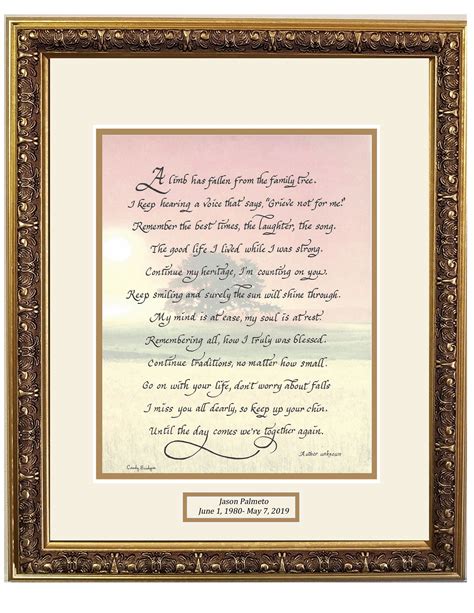 A limb has fallen from the family tree.
I keep hearing a voice that says, "Grieve not for me!"
Remember the best times, the laughter, the song.
The good life I lived while I was strong.
Continue my heritage, I'm counting on you.
Keep smiling and surely the sun will shine through.
My mind is at ease, my soul is at rest.
Remembering all, how I truly was blessed.
Continue traditions, no matter how small.
Go on with your life, don't worry about falls
I miss you all dearly, so keep up your chin.
Until the day comes we're together again.
Author unknown
Jason Palmeto
June 1, 1980- May 7, 2019